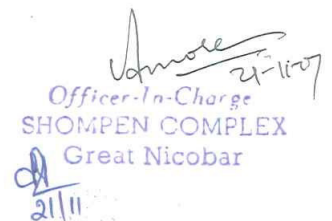 21-11-07
Officer-In-Charge
SHOMPEN COMPLEX
Great Nicobar
21/11